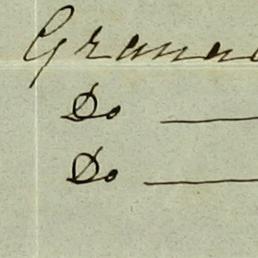 Grana
Do —
Do —